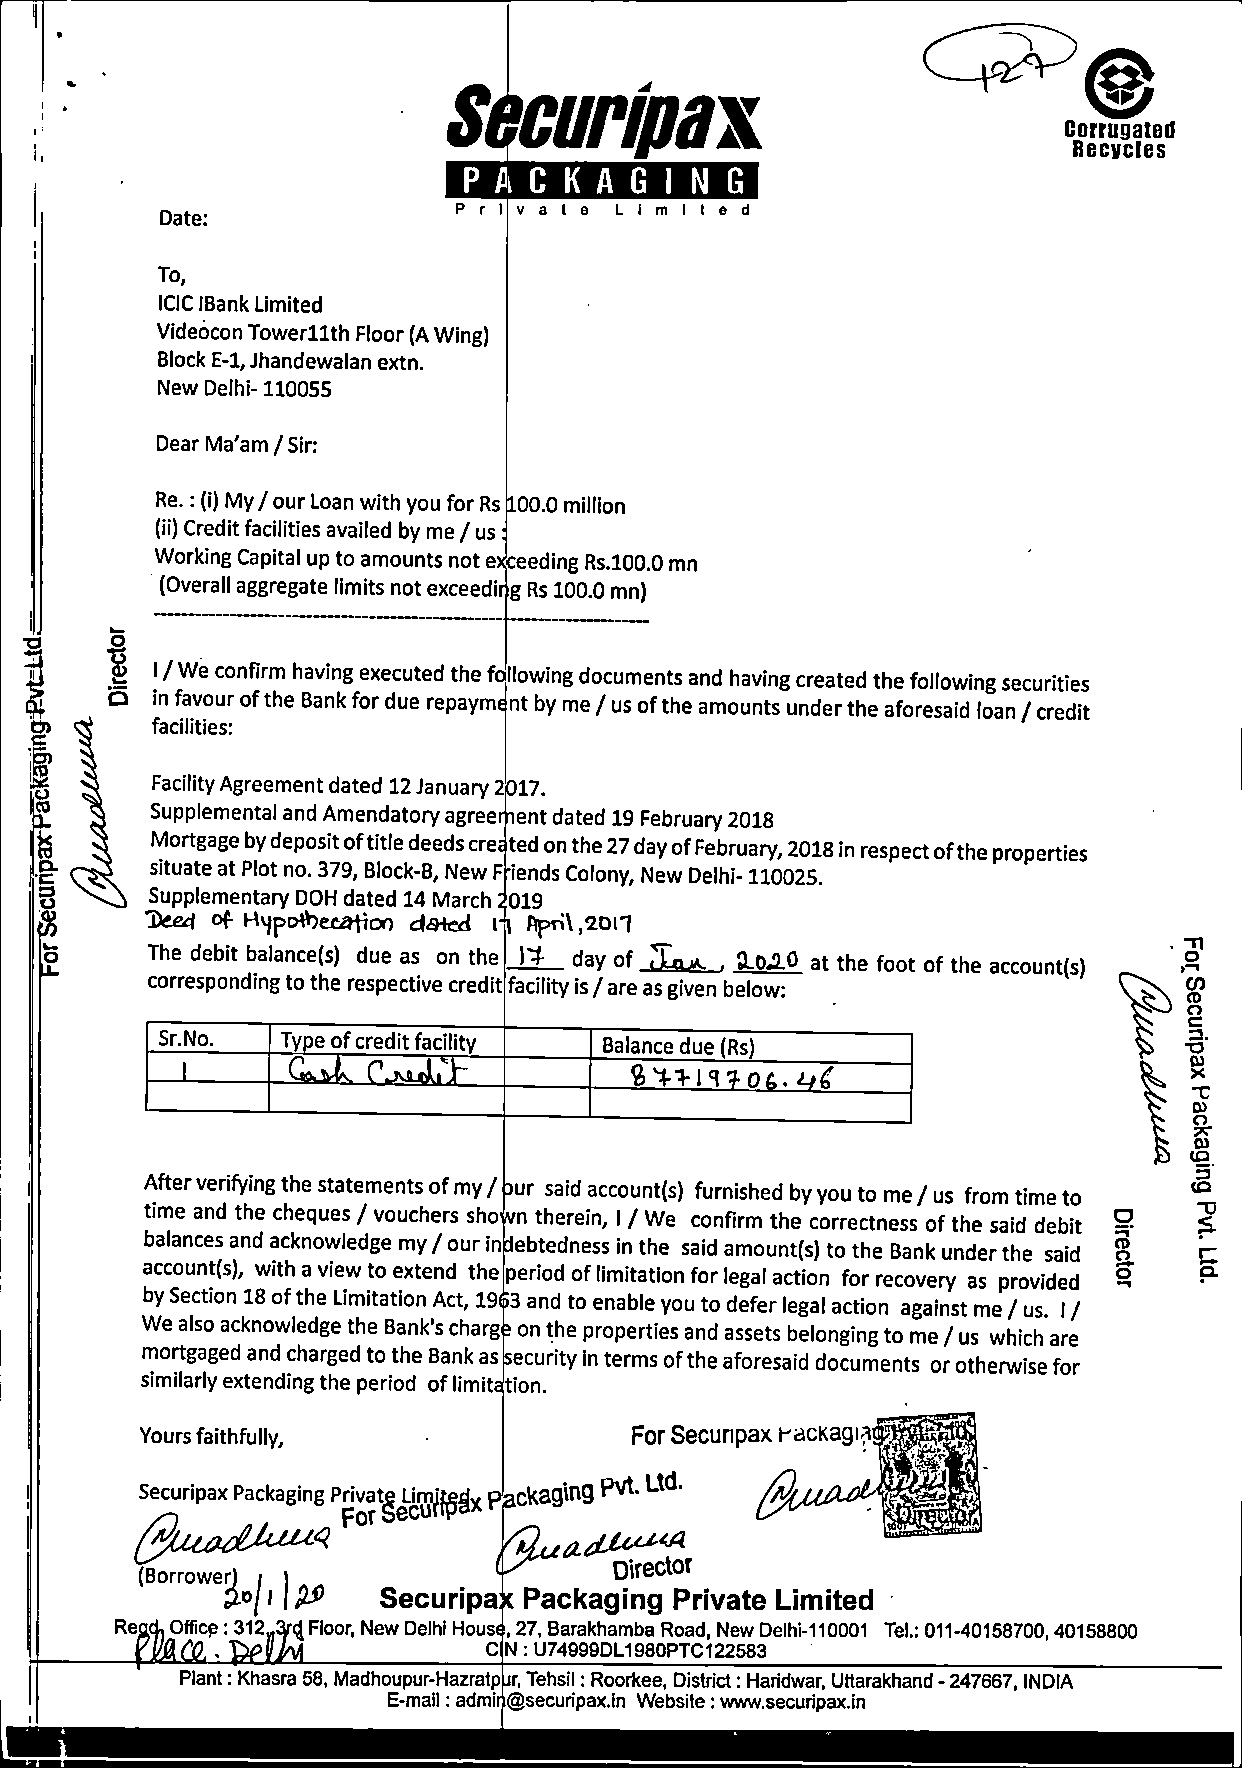 127
Corrugated
Recycles
Securipax
PACKAGING
Private Limited
Date:
To,
ICIC IBank Limited
Videocon Tower11th Floor (A Wing)
Block E-1, Jhandewalan extn.
New Delhi- 110055
Dear Ma'am / Sir:
Re. : (i) My / our Loan with you for Rs 100.0 million
(ii) Credit facilities availed by me / us :
Working Capital up to amounts not exceeding Rs.100.0 mn
(Overall aggregate limits not exceeding Rs 100.0 mn)
I / We confirm having executed the following documents and having created the following securities
in favour of the Bank for due repayment by me / us of the amounts under the aforesaid loan / credit
facilities:
Facility Agreement dated 12 January 2017.
Supplemental and Amendatory agreement dated 19 February 2018
Mortgage by deposit of title deeds created on the 27 day of February, 2018 in respect of the properties
situate at Plot no. 379, Block-B, New Friends Colony, New Delhi- 110025.
Supplementary DOH dated 14 March 2019
Deed of Hypothecation dated 17 April, 2017
The debit balance(s) due as on the 17 day of Jan, 2020 at the foot of the account(s)
corresponding to the respective credit facility is / are as given below:
Sr.No. Type of credit facility Balance due (Rs)
1 Cash Credit 87719706.46
After verifying the statements of my / our said account(s) furnished by you to me / us from time to
time and the cheques / vouchers shown therein, I / We confirm the correctness of the said debit
balances and acknowledge my / our indebtedness in the said amount(s) to the Bank under the said
account(s), with a view to extend the period of limitation for legal action for recovery as provided
by Section 18 of the Limitation Act, 1963 and to enable you to defer legal action against me / us. I /
We also acknowledge the Bank's charge on the properties and assets belonging to me / us which are
mortgaged and charged to the Bank as security in terms of the aforesaid documents or otherwise for
similarly extending the period of limitation.
Yours faithfully,
For Securipax Packaging
Director
Securipax Packaging Private Limited
For Securipax Packaging Pvt. Ltd.
Director
(Borrower)
20/1/20
Place. Delhi
For Securipax Packaging Pvt. Ltd.
Director
For Securipax Packaging Pvt. Ltd.
Director
Securipax Packaging Private Limited
Regd. Office : 312, 3rd Floor, New Delhi House, 27, Barakhamba Road, New Delhi-110001 Tel.: 011-40158700, 40158800
CIN : U74999DL1980PTC122583
Plant : Khasra 58, Madhoupur-Hazratpur, Tehsil : Roorkee, District : Haridwar, Uttarakhand - 247667, INDIA
E-mail : admin@securipax.in Website : www.securipax.in